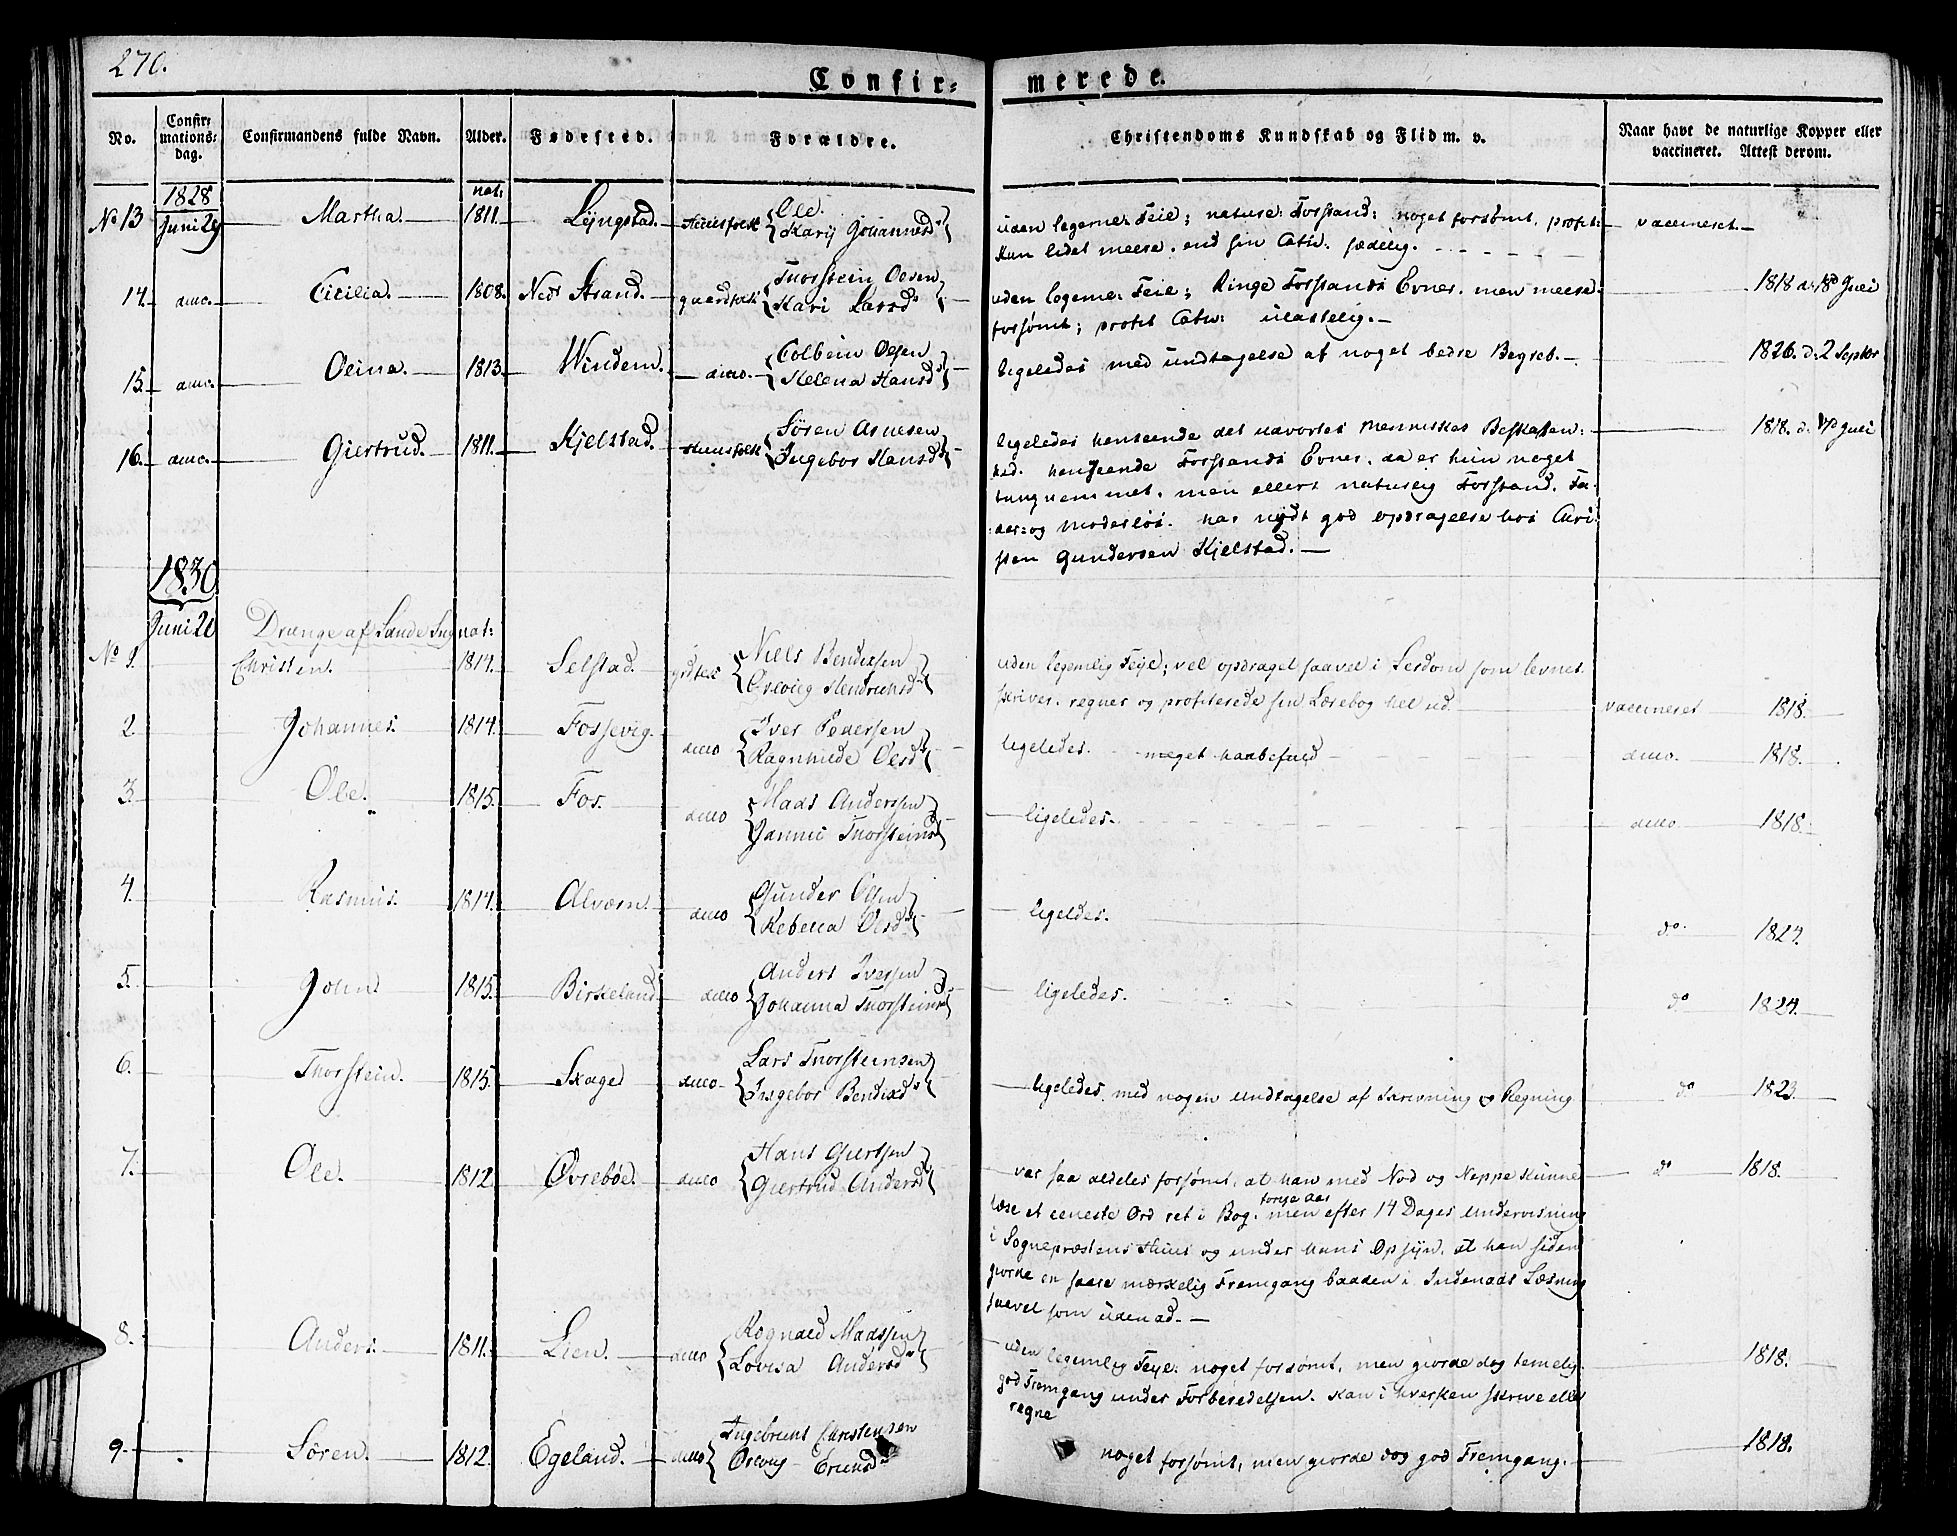 270.
Confir= merede.
No. Confirmationsdag. Confirmandens fulde Navn. Alder. Fødested. Forældre. Christendoms Kundskab og Flid m. v. Naar havt de naturlige Kopper eller vaccineret. Attest derom.
1828 nat:
No 13 Juni 29 Martha. 1811. Lÿngstad. Huusfolk Ole. Karÿ Johannesd. noget forsømt. vaccineret.
kun lidet meere end sin Catiz. sædelig.
14. dito. Cicilia. 1808. Strand. gaardfolk Thorstein Olsen Kari Larsd. uden legemer Feil; Ringe Forstands Evner. men meere 1818 d. 18d Juli
forsømt; ulastelig.
15. dito. Oline. 1813. Windem. dito. Colbein Olsen Helena Hansd. ligeledes med undtagelse af noget bedre Begreb. 1826. d. 2 Septbr
16. dito. Giertrud. 1811. Kjelstad. Huusfolk Søren Asnesen Ingebor Hansd. ligeledes henseende det udvortes Menneskes Beskaffen= 1818. d. Juli
hed. henseende Forstands Evner. da er hun noget
tungnemmet. men ellers naturlig Forstand. Fa=
der= og Moderløs. har nÿdt god opdragelse hos Chri
sten Gundersen Kjelstad.
1830
Juni 20 Drænge af Sande Sogn nat:
No 1. Christen. 1814. Selstad. Niels Bendixsen uden legemlig Feÿl; vel opdraget saavel i Lærdom som levnet
skriver. regner og profiterede sin Læsebog hel ud. vaccineret 1818.
2. Johannes. 1814. Fossevig. dito Iver Pedersen Ragnhilde Olsd. ligeledes. meget haabefuld dito. 1818.
3. Ole. 1815. Fos. dito Mads Anderssen Jannic Thorsteinsd. ligeledes. dito 1818.
4. Rasmus. 1814. Alværn. dito Gunder Olsen Rebecca Olsd. ligeledes. do. 1824.
5. John 1815. Birkeland. dito Anders Iversen Johanna Thorsteinsd. ligeledes. do 1824.
6. Thorstein. 1815. Skage dito Lars Thorsteinsen Ingebor Bendixd. ligeledes. med nogen undtagelse af Skrivning og Regning do 1823.
7. Ole. 1812. Øvrebøe. dito Hans Giertsen Giertrud Andersd. var saa aldeles forsømt, at han med Nød og Neppe kunne do 1818.
læse et eeneste Ord ret i Bog. forrige Aar men efter 14 Dages undervisning
i Sognepræstens Huus og under hans Opsÿn. at han siden
giorde en saare mærkelig Fremgang baade i Indenads Læsning
saavel som udenad.
8. Anders. 1811. Lien. dito Rognald Madssen Lovisa Andersd. uden legemlig Feÿl. noget forsømt, men giorde dog temelig 1818.
god Fremgang under Forberedelsen. kan i hverken skrive eller
regne
9. Søren. 1812. Egeland. dito Ingebrigt Christensen noget forsømt, men giorde dog god Fremgang. 1818.